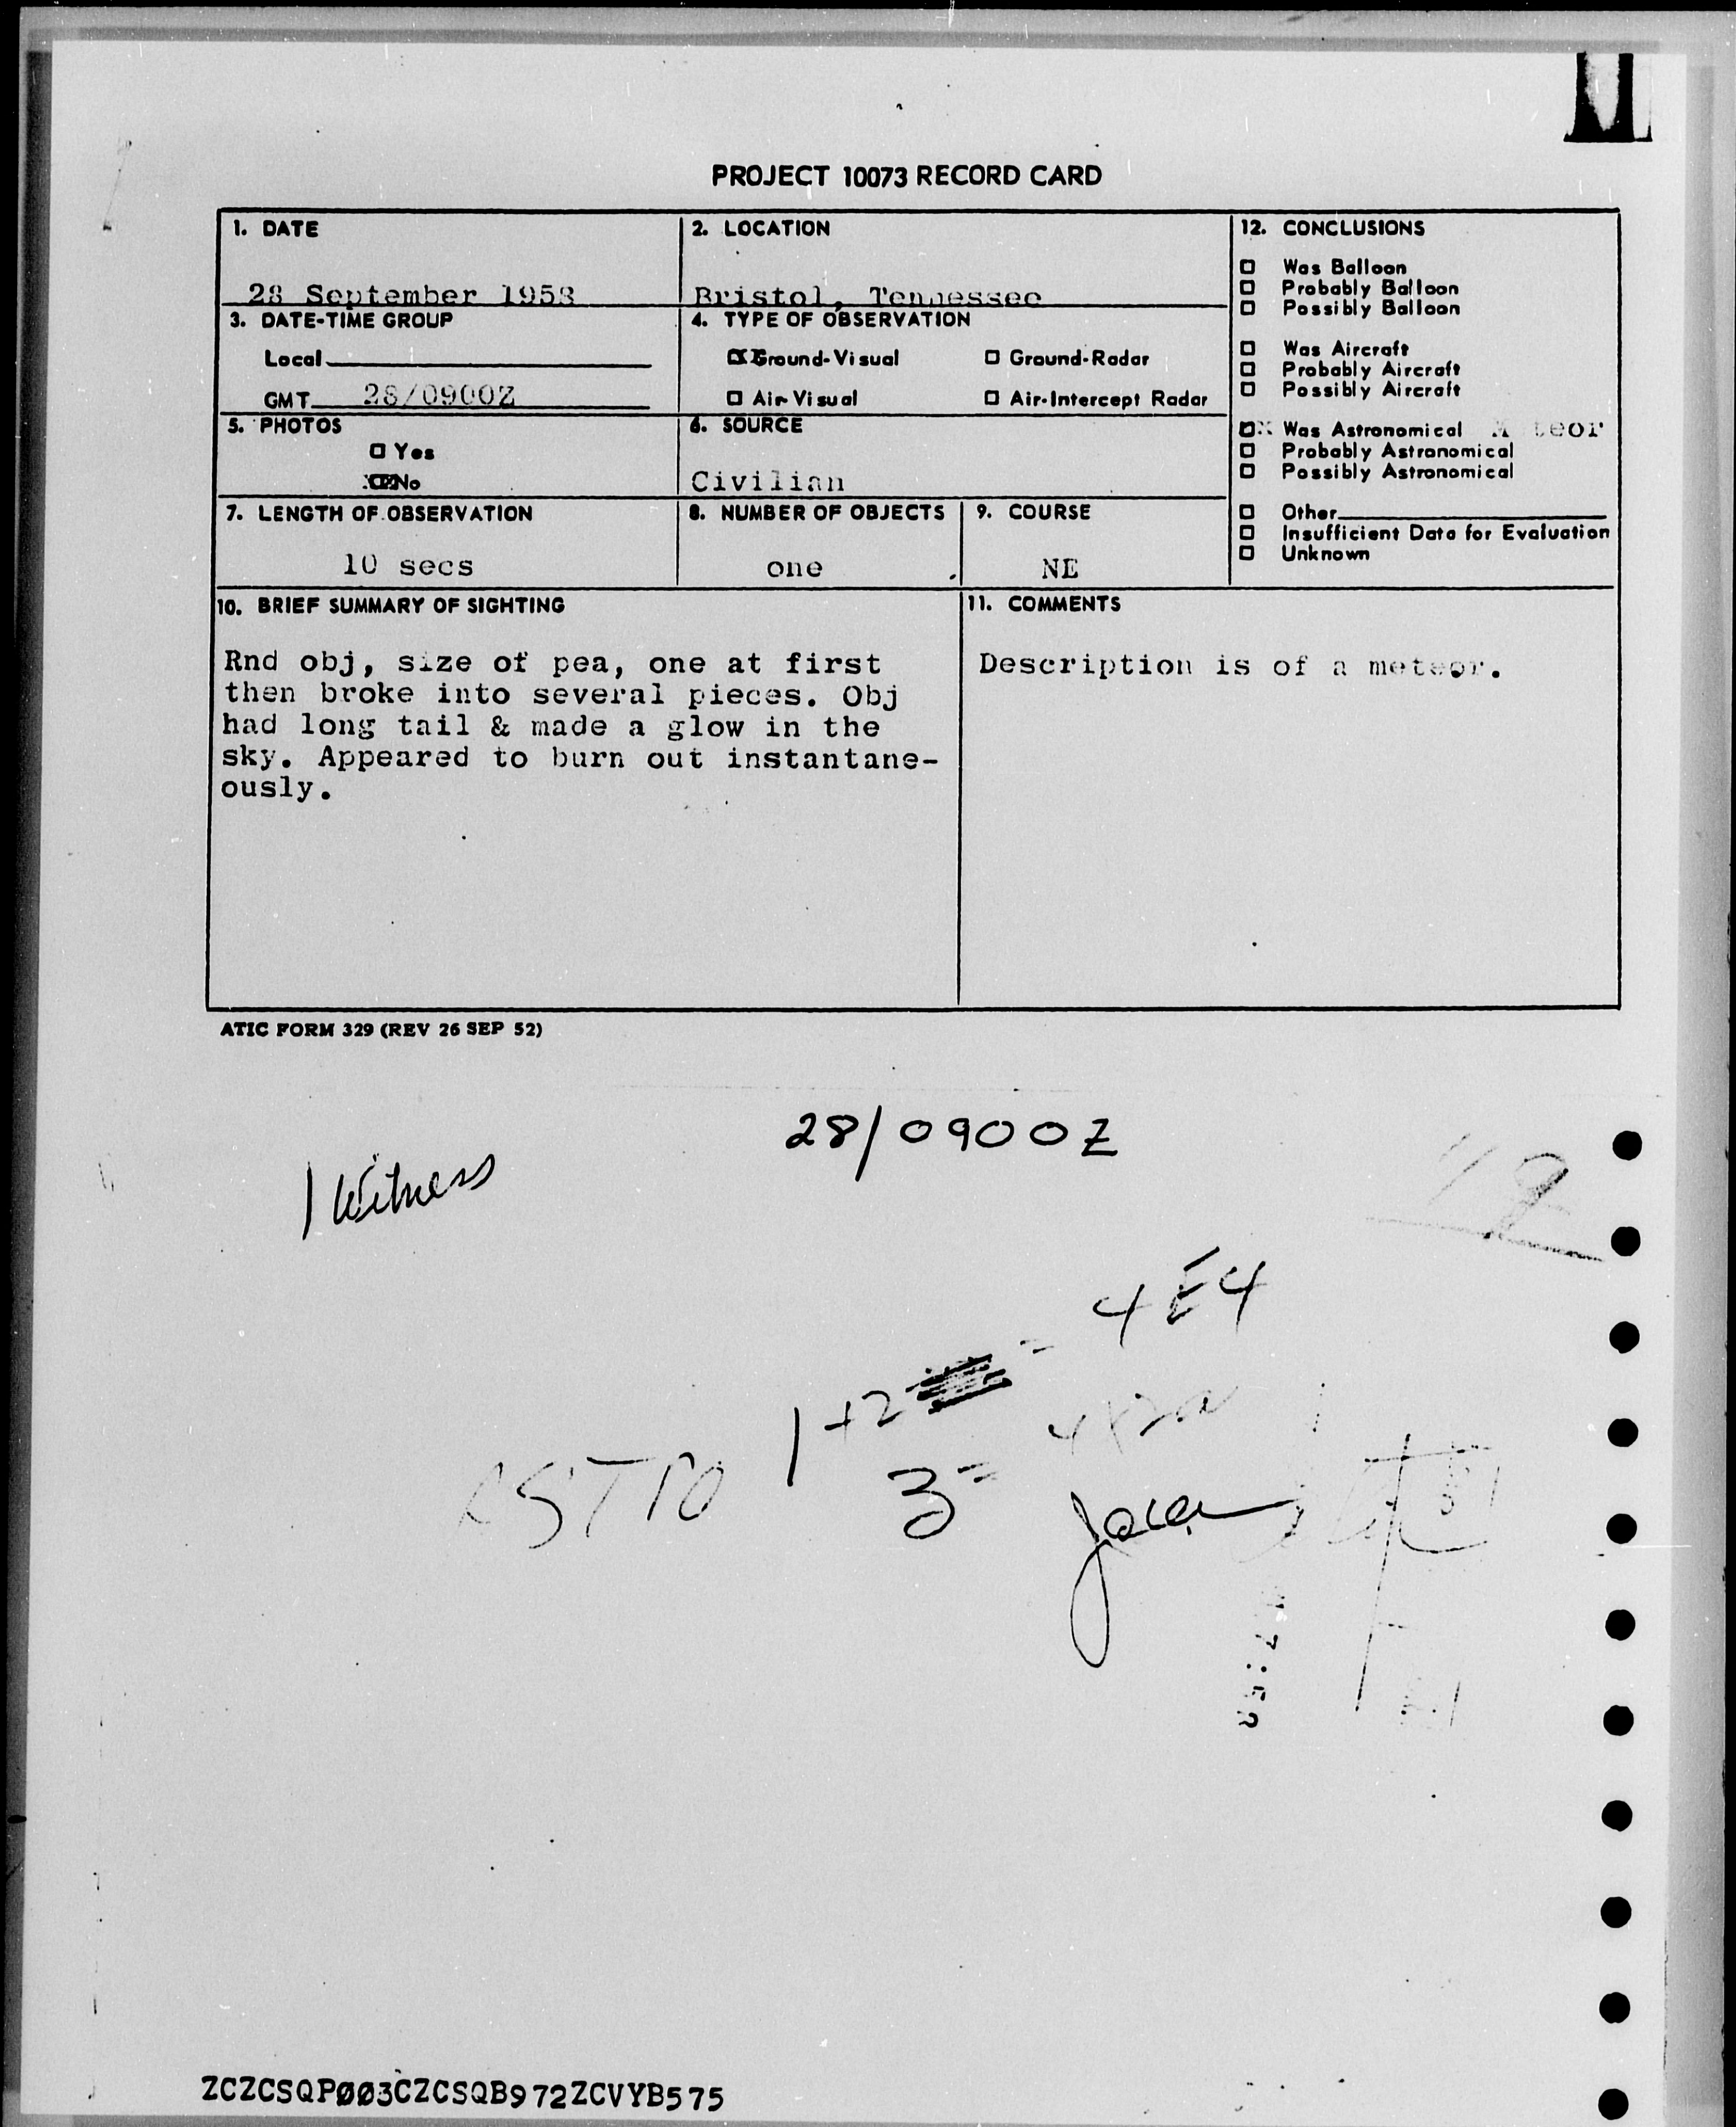 PROJECT 10073 RECORD CARD
1. DATE
28 September 1958
2. LOCATION
Bristol, Tennessee
3. DATE-TIME GROUP
Local
GMT 28/0900Z
4. TYPE OF OBSERVATION
Ground-Visual Ground-Radar
Air-Visual Air-Intercept Radar
5. PHOTOS
Yes
No
6. SOURCE
Civilian
7. LENGTH OF OBSERVATION
10 secs
8. NUMBER OF OBJECTS
one
9. COURSE
NE
12. CONCLUSIONS
Was Balloon
Probably Balloon
Possibly Balloon
Was Aircraft
Probably Aircraft
Possibly Aircraft
Was Astronomical
Probably Astronomical
Possibly Astronomical
Other
Insufficient Data for Evaluation
Unknown
10. BRIEF SUMMARY OF SIGHTING
Rnd obj, size of pea, one at first
then broke into several pieces. Obj
had long tail & made a glow in the
sky. Appeared to burn out instantane-
ously.
11. COMMENTS
Description is of a meteor.
ATIC FORM 329 (REV 26 SEP 52)
28/0900Z
1 Witness
4E4
1+2 =
3 =
ZCZCSQP003CZCSQB972ZCVYB575